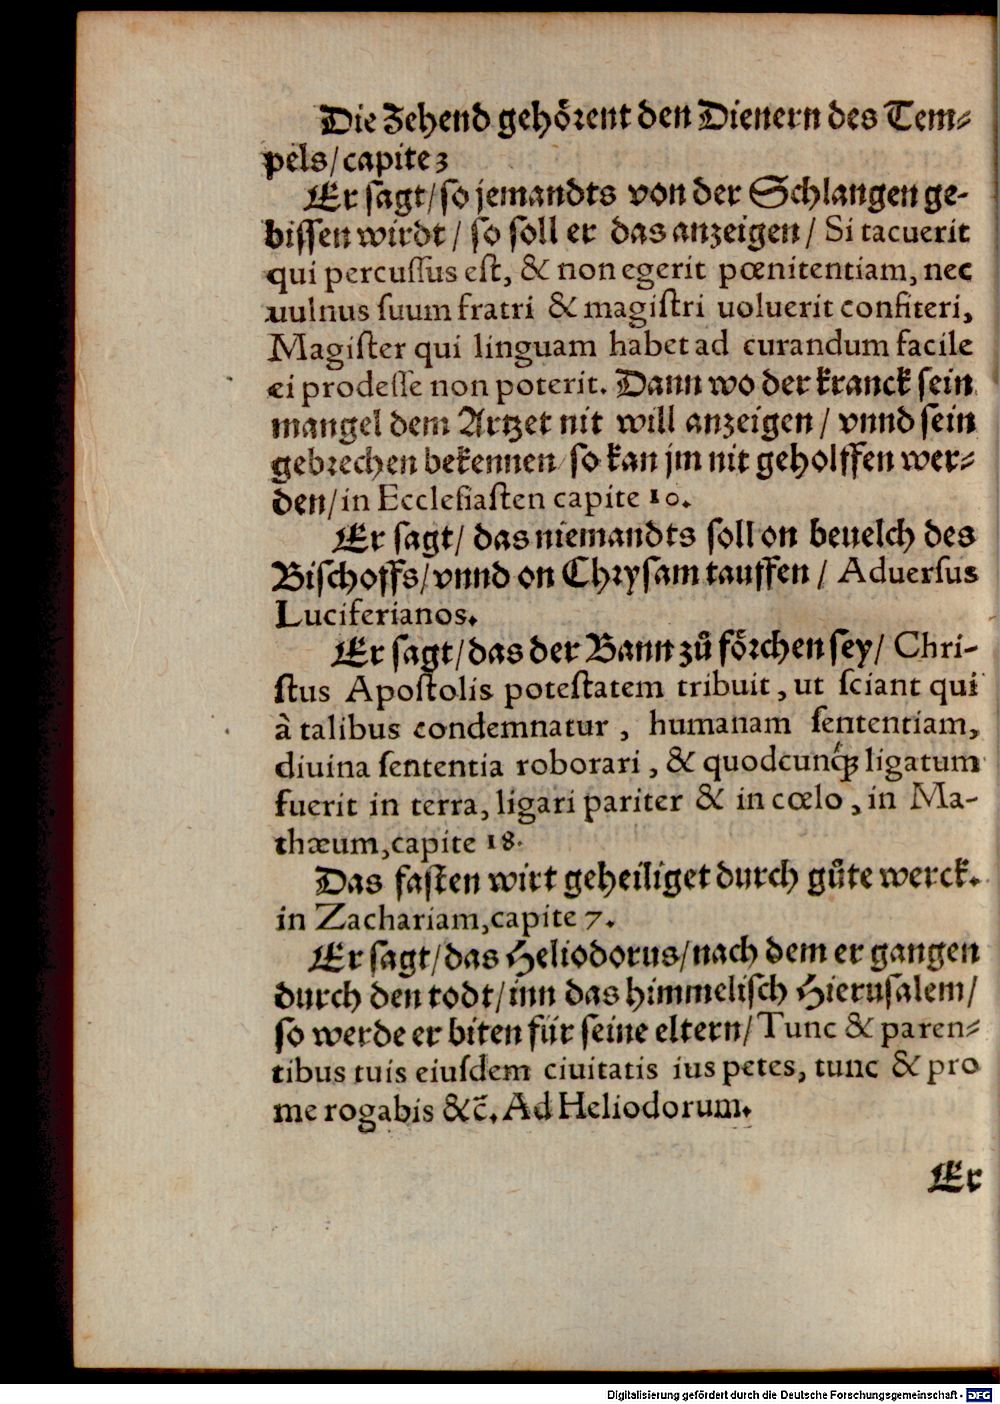 Die Zehend gehoͤrent den Dienern des Tem⸗
pels/capite 3
Er sagt/so jemandts von der Schlangen ge-
bissen wirdt / so soll er das anzeigen / Si tacuerit
qui percussus est, & non egerit pœnitentiam, nec
uulnus suum fratri & magistri uoluerit confiteri,
Magister qui linguam habet ad curandum facile
ei prodesse non poterit. Dann wo der kranck sein
mangel dem Artzet nit will anzeigen / vnnd sein
gebrechen bekennen/so kan jm nit geholffen wer⸗
den/in Ecclesiasten capite 10.
Er sagt/ das niemandts soll on beuelch des
Bischoffs/vnnd on Chrysam tauffen / Aduersus
Luciferianos.
Er sagt/das der Bann zů foͤrchen sey/ Chri-
stus Apostolis potestatem tribuit, ut sciant qui
à talibus condemnatur, humanam sententiam,
diuina sententia roborari, & quodcunq́ꝫ ligatum
fuerit in terra, ligari pariter & in cœlo, in Ma-
thæum,capite 18.
Das fasten wirt geheiliget durch gůte werck.
in Zachariam,capite 7.
Er sagt/das Heliodorus/nach dem er gangen
durch den todt/inn das himmelisch Hierusalem/
so werde er biten für seine eltern/Tunc & paren⸗
tibus tuis eiusdem ciuitatis ius petes, tunc & pro
me rogabis &c̃. Ad Heliodorum.
Er
Digitalisierung gefördert durch die Deutsche Forschungsgemeinschaft - DFG